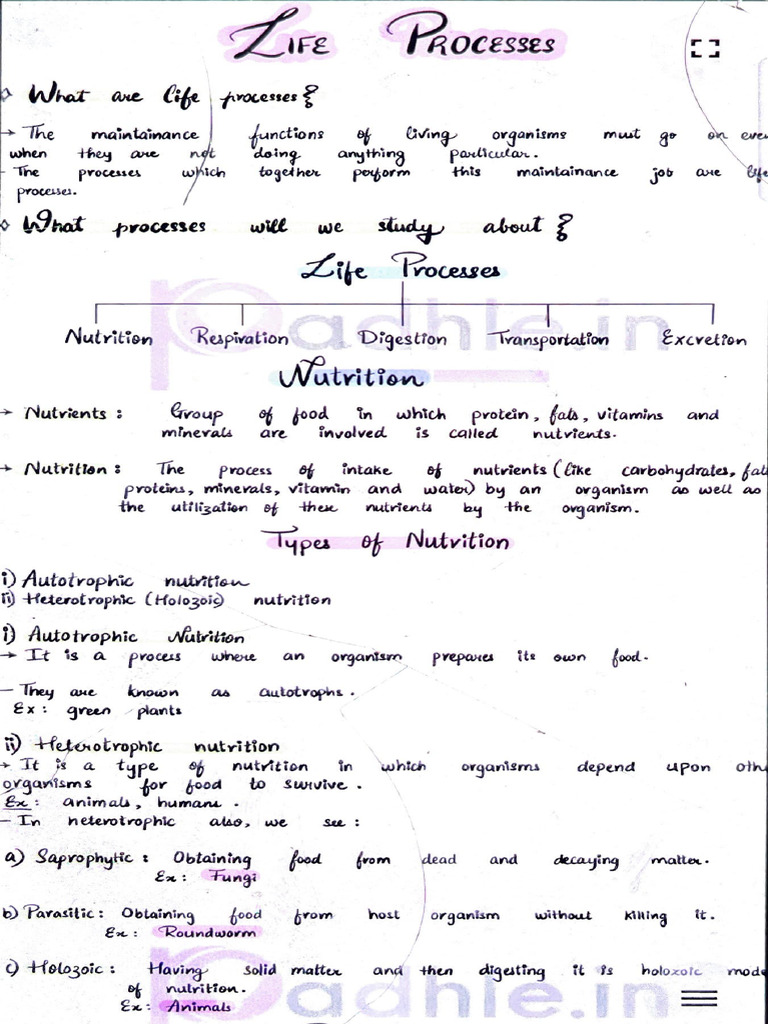 LIFE PROCESSES
What are life processes?
→ The maintainance functions of living organisms must go on even
when they are not doing anything particular.
- The processes which together perform this maintainance job are life
processes.
What processes will we study about?
Life Processes
Nutrition Respiration Digestion Transportation Excretion
Nutrition
→ Nutrients : Group of food in which protein, fats, vitamins and
minerals are involved is called nutrients.
→ Nutrition : The process of intake of nutrients (like carbohydrates, fats
proteins, minerals, vitamin and water) by an organism as well as
the utilization of these nutrients by the organism.
Types of Nutrition
i) Autotrophic nutrition
ii) Heterotrophic (Holozoic) nutrition
i) Autotrophic Nutrition
→ It is a process where an organism prepares its own food.
- They are known as autotrophs.
Ex: green plants
ii) Heterotrophic nutrition
→ It is a type of nutrition in which organisms depend upon oth
organisms for food to survive.
Ex: animals, humans.
- In heterotrophic also, we see :
a) Saprophytic : Obtaining food from dead and decaying matter.
Ex: Fungi
b) Parasitic : Obtaining food from host organism without killing it.
Ex: Roundworm
c) Holozoic : Having solid matter and then digesting it is holozoic mode
of nutrition.
Ex: Animals
Padhle.in
Padhle.in